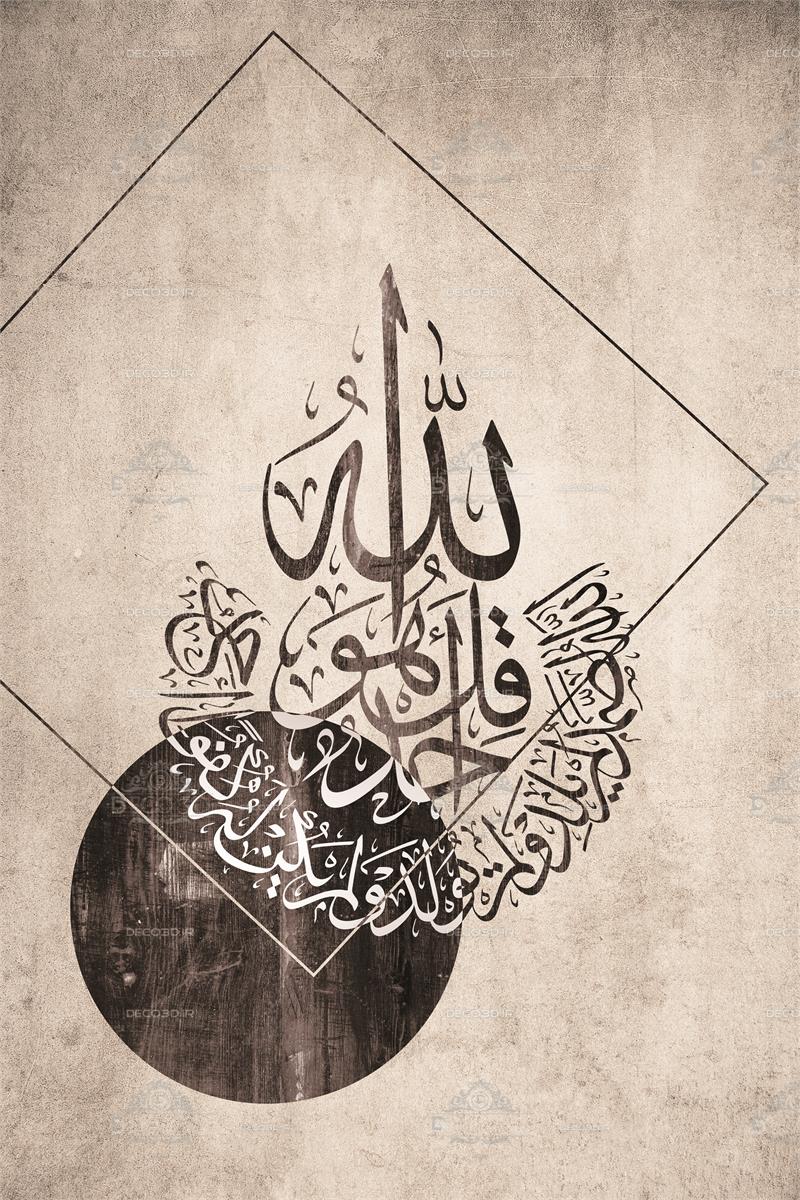 قُلْ هُوَ اللَّهُ أَحَدٌ
اللَّهُ الصَّمَدُ لَمْ يَلِدْ وَلَمْ يُولَدْ وَلَمْ يَكُنْ لَهُ كُفُوًا أَحَدٌ
DECO3D.IR